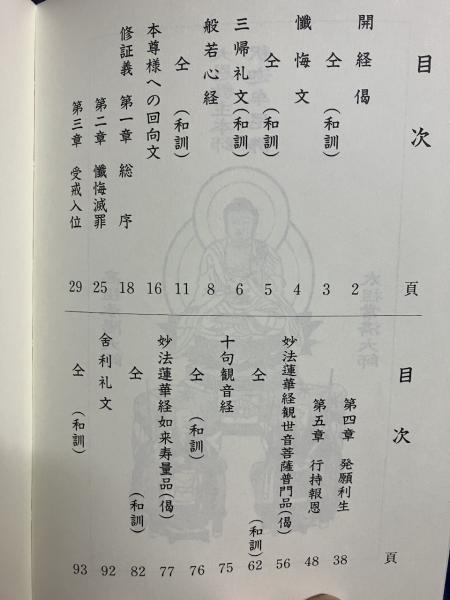 目次
頁
開経偈 2
仝 (和訓) 3
懺悔文 4
仝 (和訓) 5
三帰礼文(和訓) 6
般若心経 8
仝 (和訓) 11
本尊様への回向文 16
修証義 第一章 総序 18
第二章 懺悔滅罪 25
第三章 受戒入位 29
目次
頁
第四章 発願利生 38
第五章 行持報恩 48
妙法蓮華経観世音菩薩普門品(偈) 56
仝 (和訓) 62
十句観音経 75
仝 (和訓) 76
妙法蓮華経如来寿量品(偈) 77
仝 (和訓) 82
舍利礼文 92
仝 (和訓) 93